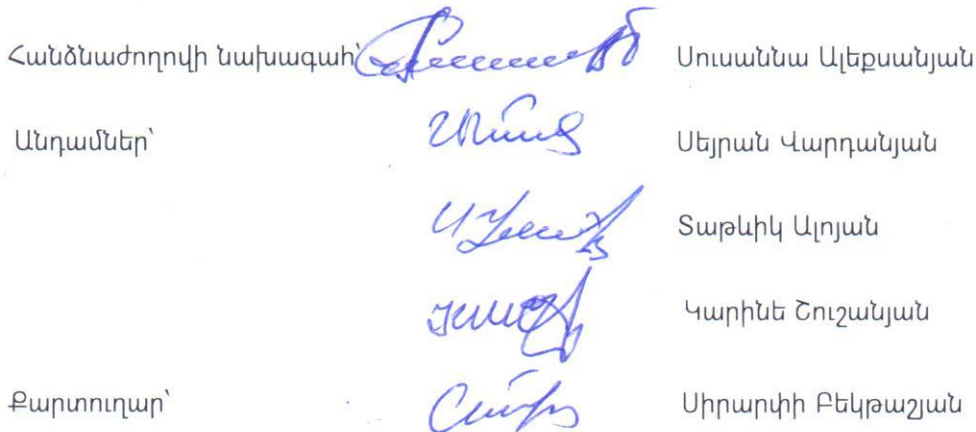 Հանձնաժողովի նախագահ՝ Սուսաննա Ալեքսանյան
Անդամներ՝ Սեյրան Վարդանյան
Տաթևիկ Ալոյան
Կարինե Շուշանյան
Քարտուղար՝ Սիրարփի Բեկթաշյան